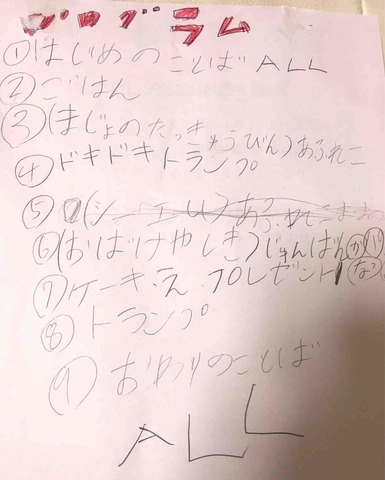 プログラム
①はじめのことばALL
②ごはん
③(まじょのたっきゅうびん)あふれこ
④ドキドキトランプ
⑤(シ
⑥(おばけやしき)じゅんばん
⑦ケーキ・え・プレゼント
⑧トランプ
⑨おわりのことば
ALL